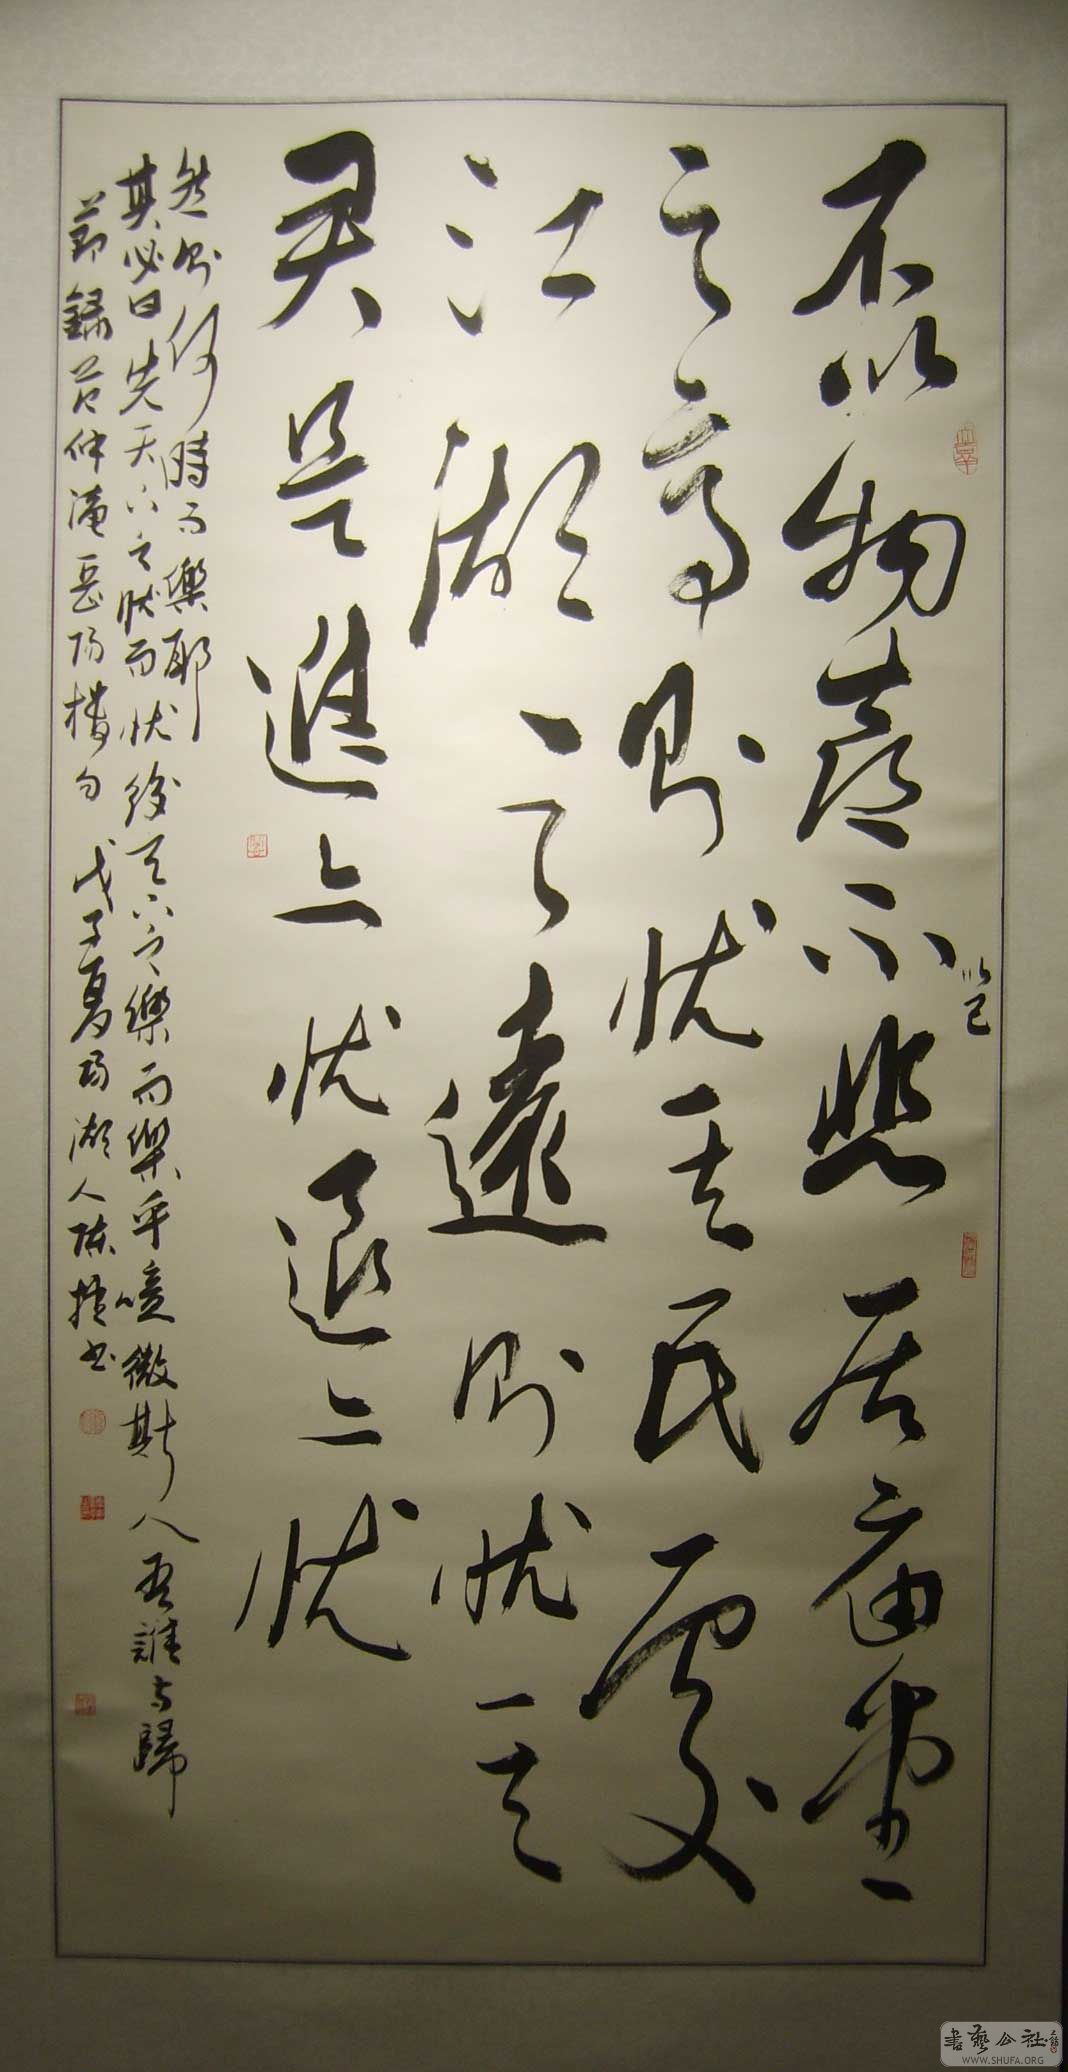 不以物喜不悲居庙堂
以己
之高则忧其民處
江湖之遠则忧其
君是進亦忧退亦忧
然则何時而樂耶
其必曰先天下之忧而忧後天下之樂而樂乎噫微斯人吾誰与歸
節録范仲淹岳阳楼句 戊子夏阳湖人陈书
書藝公社
WWW.SHUFA.ORG